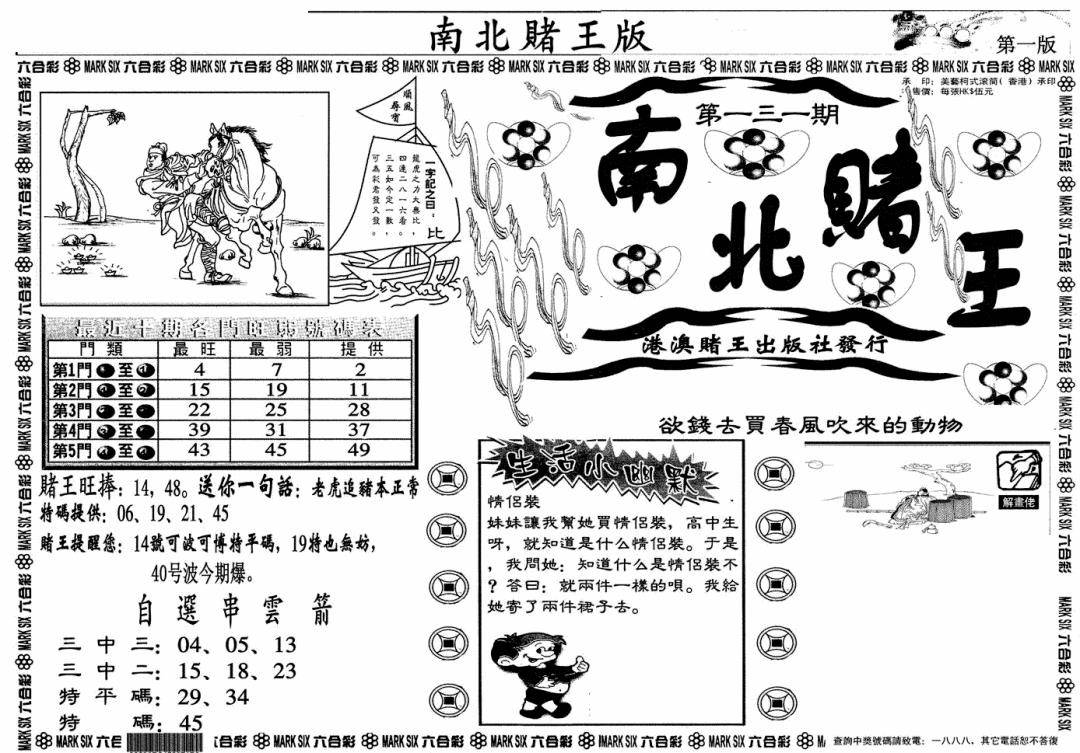 南北賭王版
第一版
六合彩 MARK SIX 六合彩 MARK SIX 六合彩 MARK SIX 六合彩 MARK SIX 六合彩 MARK SIX 六合彩 MARK SIX 六合彩 MARK SIX 六合彩 MARK SIX 六合彩 MARK SIX 六合彩 MARK SIX
承印：美藝柯式滾筒（香港）承印
售價：每張HK$伍元
第一三一期
南北賭王
港澳賭王出版社發行
順風尋寶
一字記之曰：比
龍虎之力大無比，
四連二八一六看。
三五如今定一數，
可為彩君發又發。
最近十期各門旺弱號碼表
門類 最旺 最弱 提供
第1門 至 4 7 2
第2門 至 15 19 11
第3門 至 22 25 28
第4門 至 39 31 37
第5門 至 43 45 49
賭王旺捧：14，48。送你一句話：老虎追豬本正常
特碼提供：06、19、21、45
賭王提醒您：14號可波可博特平碼，19特也無妨，
40号波今期爆。
自選串雲箭
三中三：04、05、13
三中二：15、18、23
特平碼：29、34
特碼：45
生活小幽默
情侶裝
妹妹讓我幫她買情侶裝，高中生
呀，就知道是什么情侶裝。于是
，我問她：知道什么是情侶裝不
？答曰：就兩件一樣的唄。我給
她寄了兩件裙子去。
欲錢去買春風吹來的動物
解畫佬
查詢中獎號碼請致電：一八八八、其它電話恕不答復